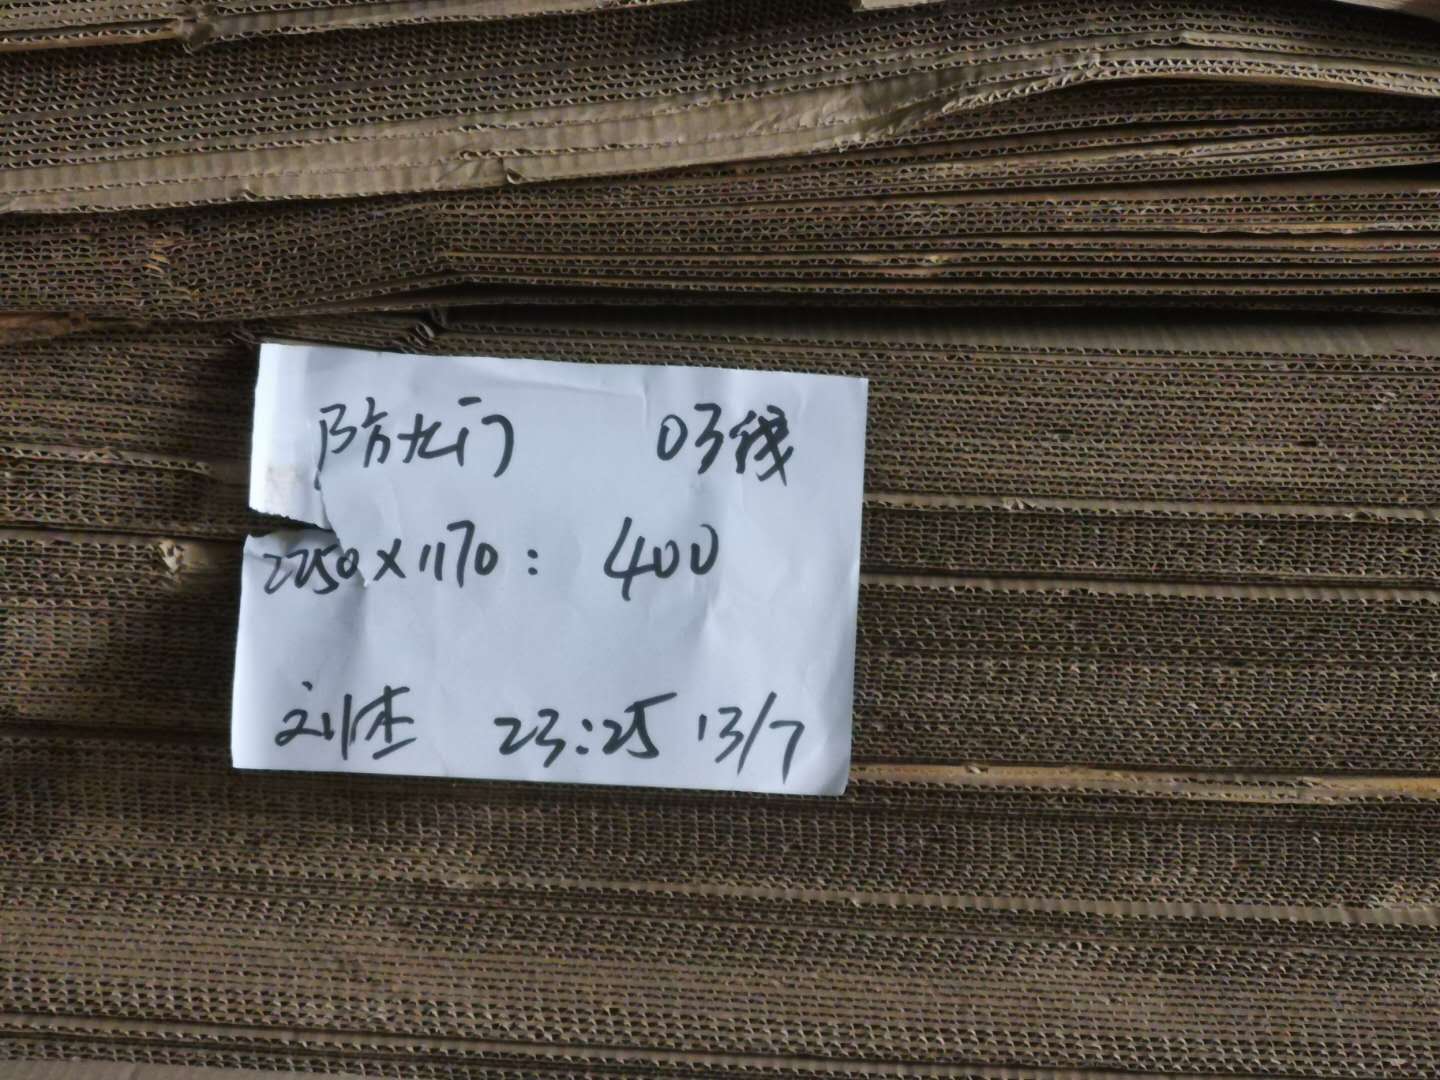 防火门 03线
2250×1170: 400
刘杰 23:25 13/7